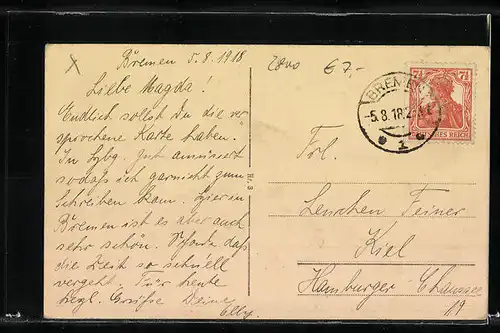 Bremen 5.8.1918
Liebe Magda!
Endlich sollst du die ver
sprochene Karte haben.
In Hbg. gut amüsiert
sodaß ich garnicht zum
Schreiben kam. Hier in
Bremen ist es aber auch
sehr schön. Schade daß
die Zeit so schnell
vergeht. Für heute
herzl. Grüße Deine
Elly.
x
€ 7.-
Nr. 3
7½ 7½
DEUTSCHES REICH
BREMEN
-5.8.18.
1
Frl.
Lenchen Feiner
Kiel
Hamburger Chaussee
19